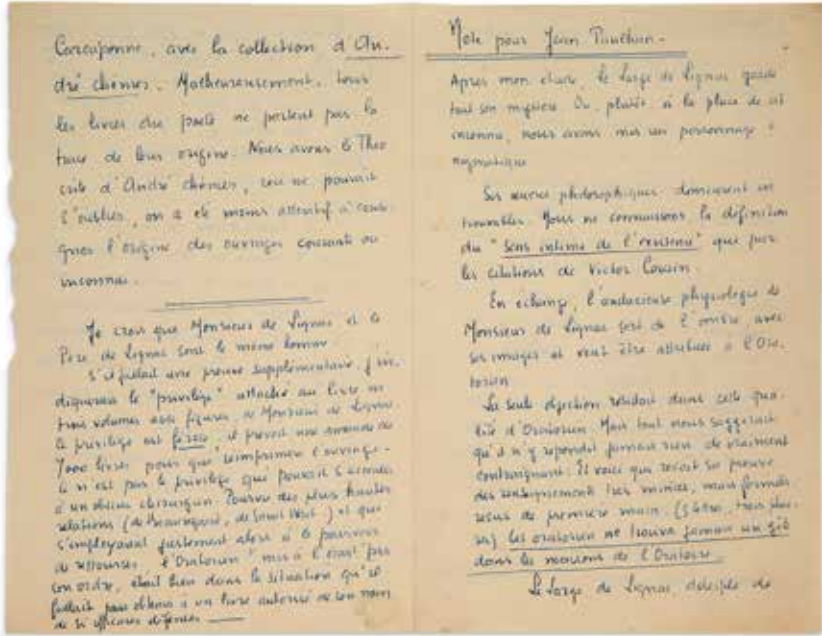 Carcassonne, avec la collection d'An-
dré chénier. Malheureusement, tous
les livres du poète ne portent pas la
trace de leur origine. Nous avons le Théo
crite d'André chénier, cou ne pouvait
l'oublier, on a été moins attentif à consi-
gner l'origine des ouvrages courants ou
inconnus.
Je crois que Monsieur de Lignac et le
Père de Lignac sont le même homme
S'il fallait une preuve supplémentaire, j'in-
diquerais le "privilège" attaché au livre en
trois volumes avec figures, de Monsieur de Lignac
le privilège est féroce, il prévoit une amende de
7000 livres pour que réimprimer l'ouvrage.
Ce n'est pas le privilège que pouvait s'accorder
à un obscur chirurgien. Pourvu des plus hautes
relations (de Beauregard, de Saint ) et qui
s'employaient justement alors à le pourvoir
de ressources l'Oratorien
son ordre, était bien dans la situation qu'il
fallait pour obtenir à un livre autorisé de son nom
de si efficaces défenses
Note pour Jean Paulhan.
Après mon étude, le Large de Lignac garde
tout son mystère. Ou, plutôt à la place de cet
inconnu, nous avons mis un personnage é
nigmatique
Ses œuvres philosophiques demeurent in
trouvables. Nous ne connaissons la définition
du "Sens intime de l'existence" que par
les citations de Victor Cousin.
En échange, l'audacieuse physiologie de
Monsieur de Lignac sort de l'ombre avec
ses images et veut être attribuée à l'Ora
torien
La seule objection résidait dans cette qua-
lité d'Oratorien. Mais tout nous suggérait
qu'il n'y répondit jamais rien de vraiment
contraignant. Et voici que reçoit sa preuve
des renseignements très minces, mais formels
reçus de première main.
les oratorien ne trouva jamais un gîte
dans les maisons de l'Oratoire.
Le Large de Lignac, disciple de